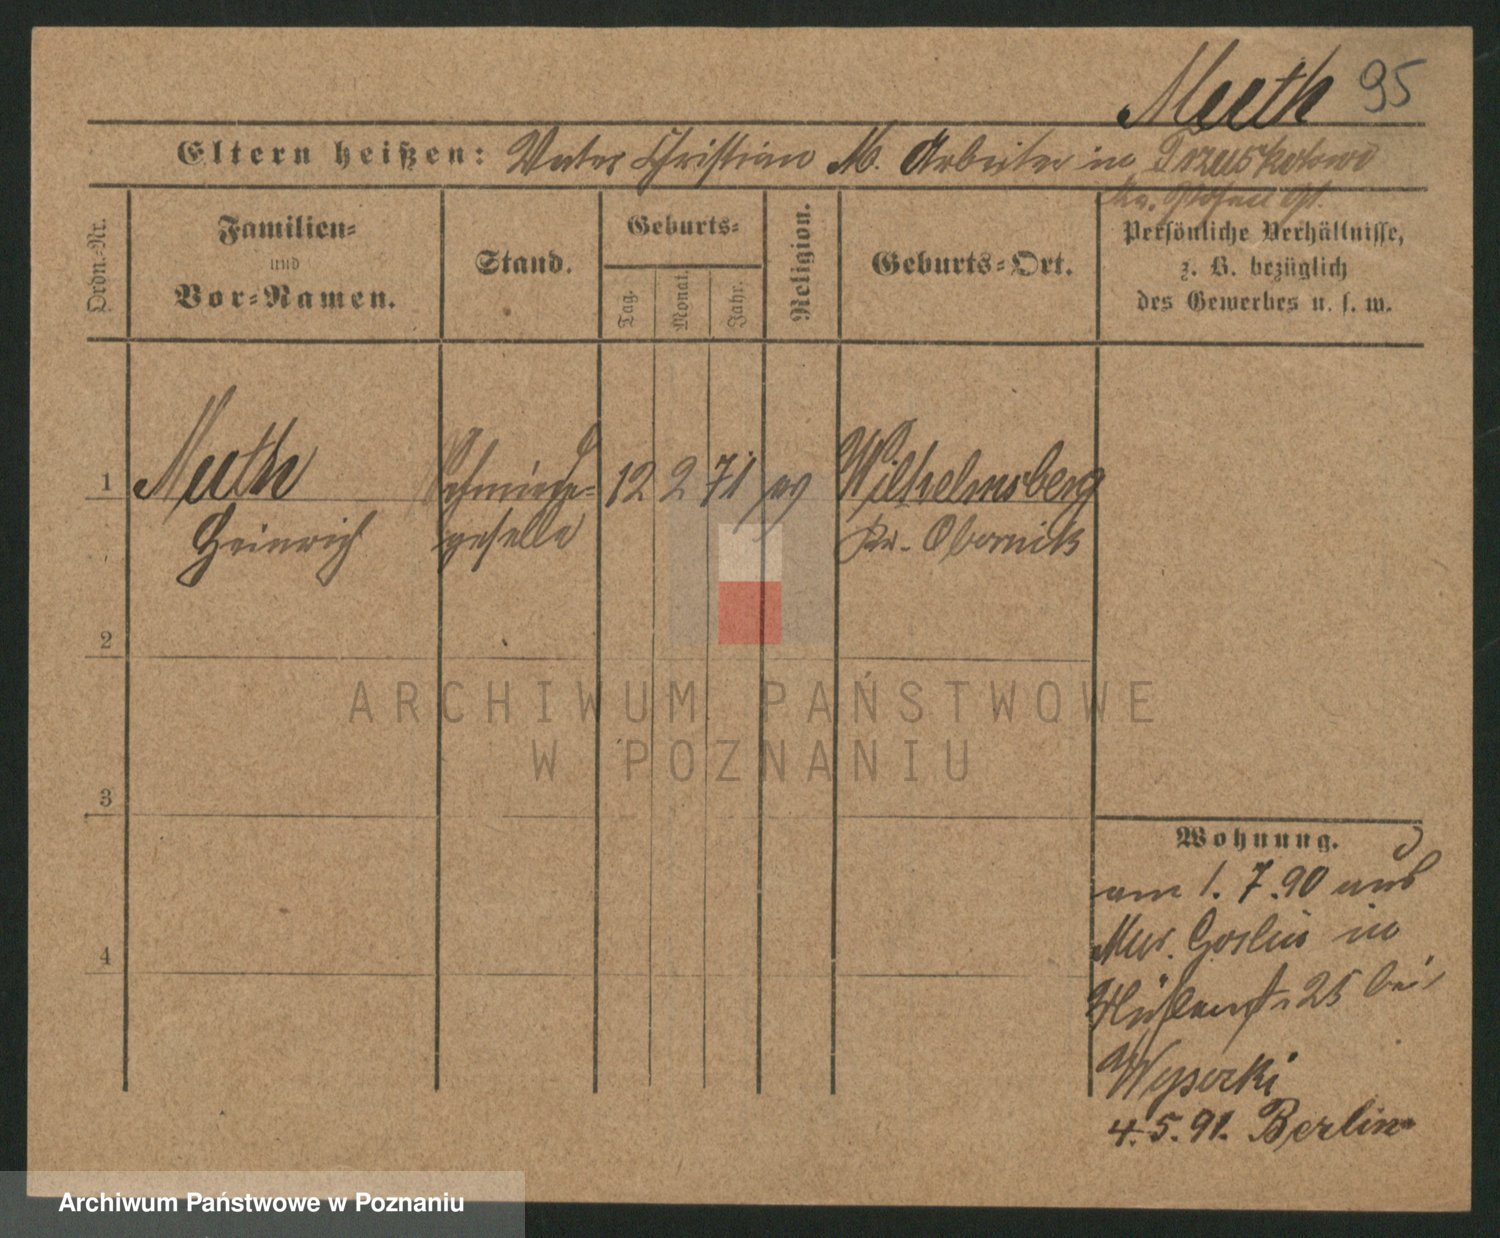 Muth 95
Eltern heißen: Vater Christian M. Arbeiter in Trzuskotowo
Kr. Posen Ost.
Ordn.-Nr.
Familien-
und
Vor-Namen.
Stand.
Geburts-
Tag.
Monat.
Jahr.
Religion.
Geburts-Ort.
Persönliche Verhältnisse,
z. B. bezüglich
des Gewerbes u. s. w.
1 Muth Schmiede- 12 2 71 ev Wilhelmsberg
Heinrich geselle Kr. Obornik
2
3
4
Wohnung.
am 1. 7. 90 aus
Mur. Goslin in
25 bei
Wysocki
4. 5. 91. Berlin
ARCHIWUM PAŃSTWOWE
W POZNANIU
Archiwum Państwowe w Poznaniu